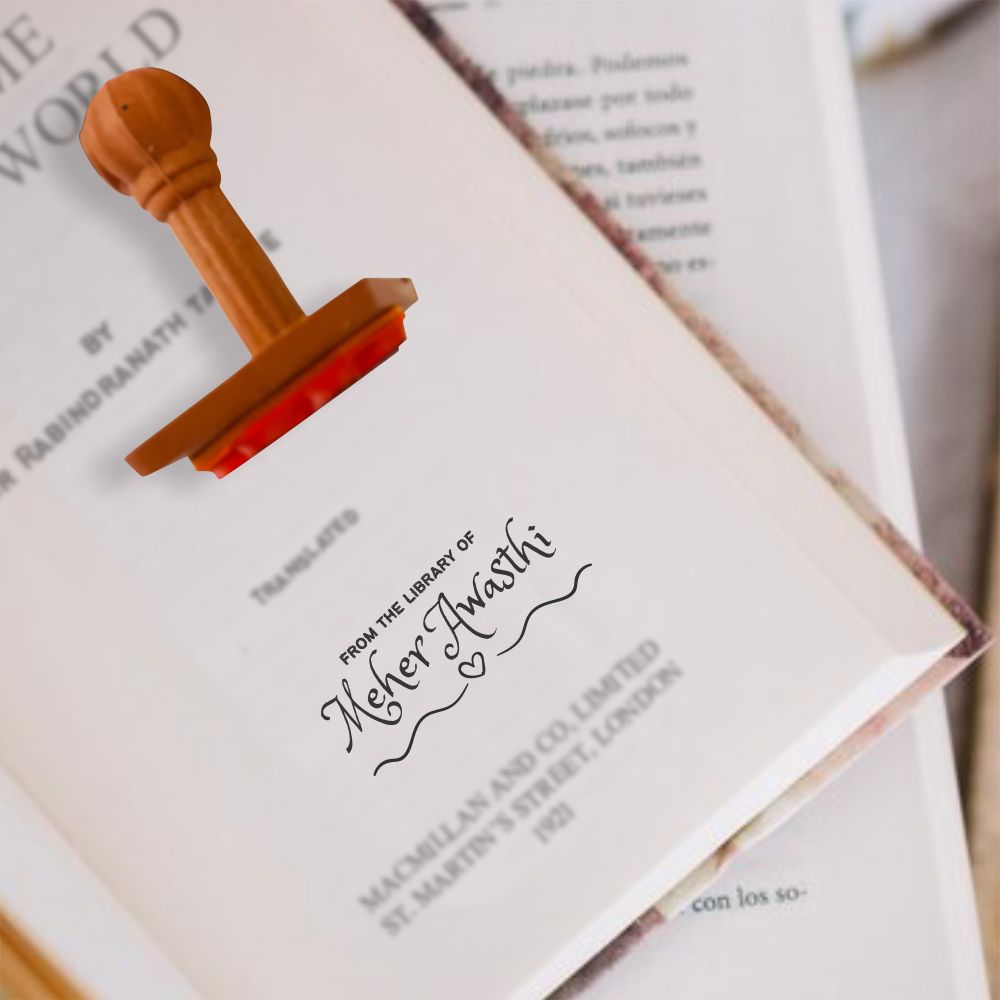 WORLD
BY
RABINDRANATH
TRANSLATED
FROM THE LIBRARY OF
Meher Awasthi
MACMILLAN AND CO, LIMITED
ST. MARTIN'S STREET, LONDON
1921
piedra. Podemos
por todo
sofocos y
también
si tuvieses
con los so-